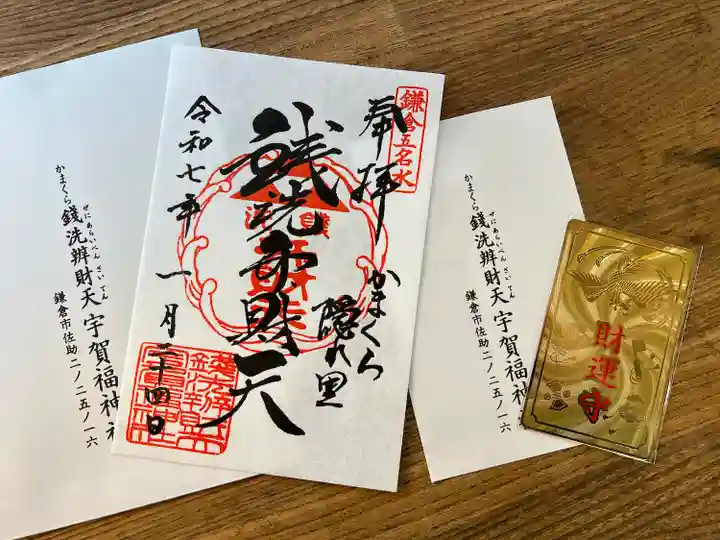 鎌倉五名水
奉拝
かまくら
隠れ里
銭洗弁財天
令和七年 一月二十四日
ぜにあらいべんざいてん
かまくら 錢洗辨財天 宇賀福神
鎌倉市佐助二ノ二五ノ一六
ぜにあらいべんざいてん
かまくら 錢洗辨財天 宇賀福神
鎌倉市佐助二ノ二五ノ一六
財運守